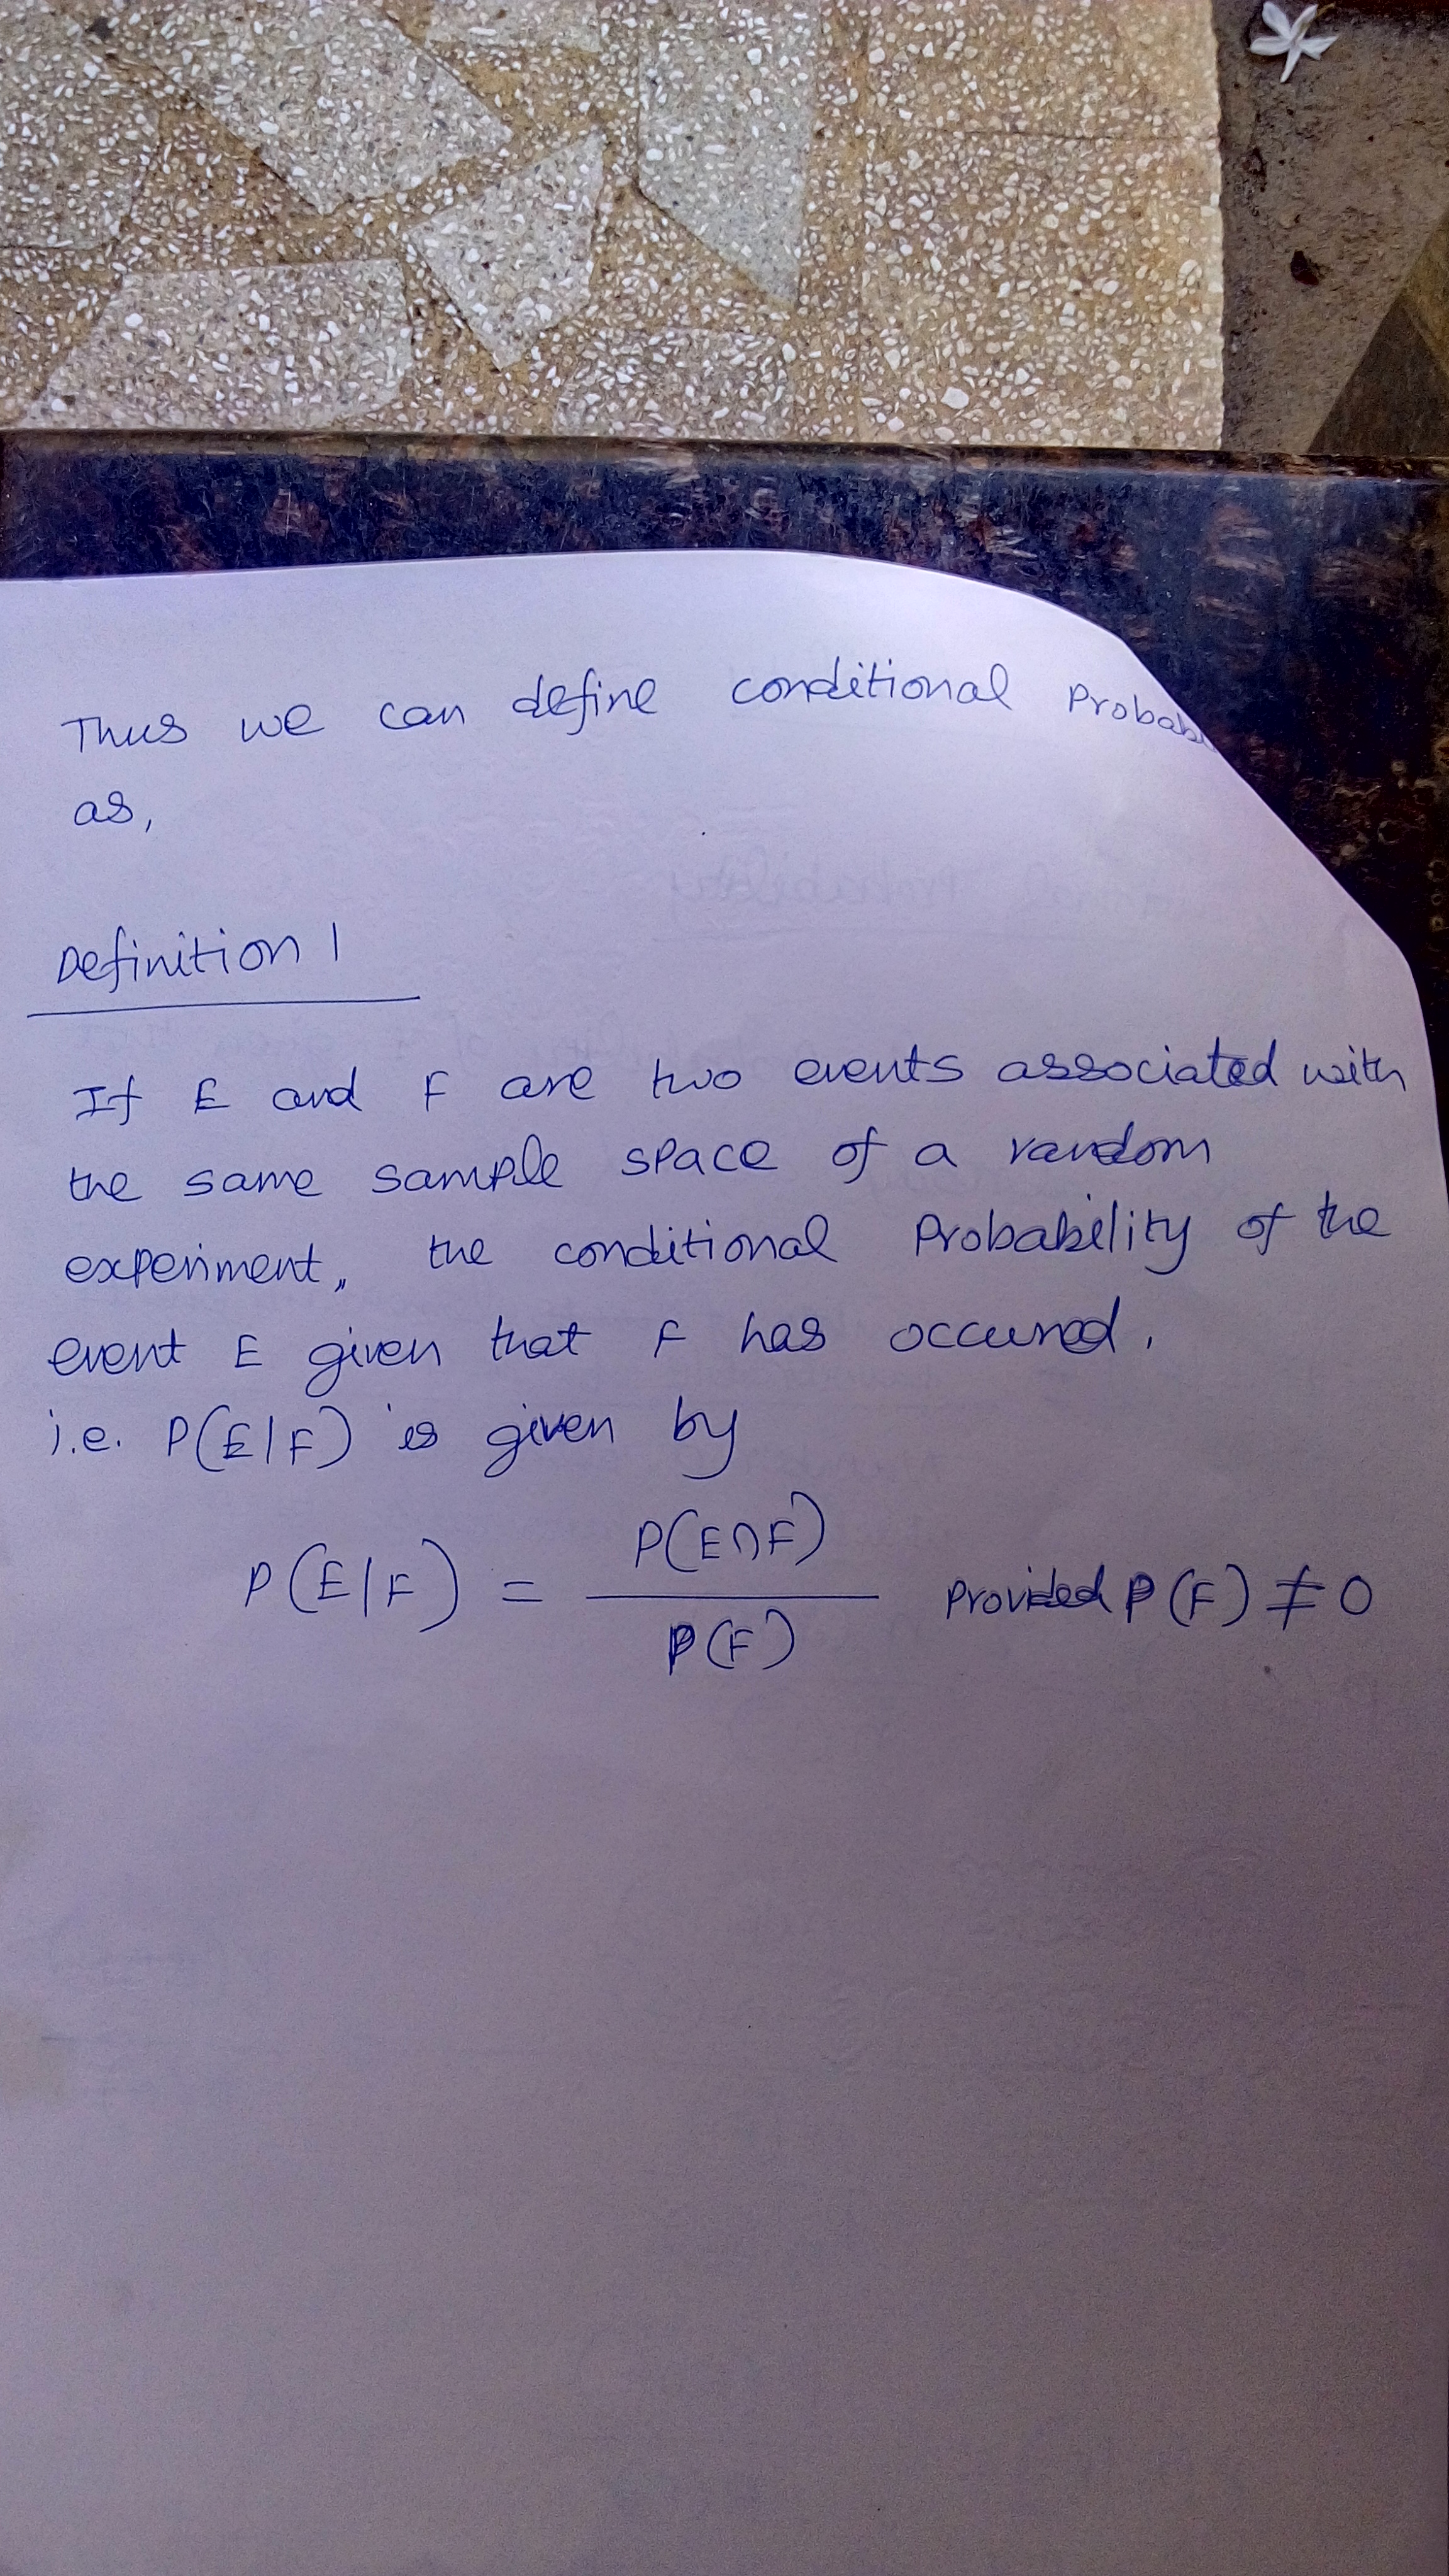 Thus we can define conditional Probab
as,
Definition 1
If E and F are two events associated with
the same sample space of a random
experiment, the conditional Probability of the
event E given that F has occurred,
i.e. P(E|F) is given by
P(E|F) = P(E∩F) / P(F) Provided P(F) ≠ 0